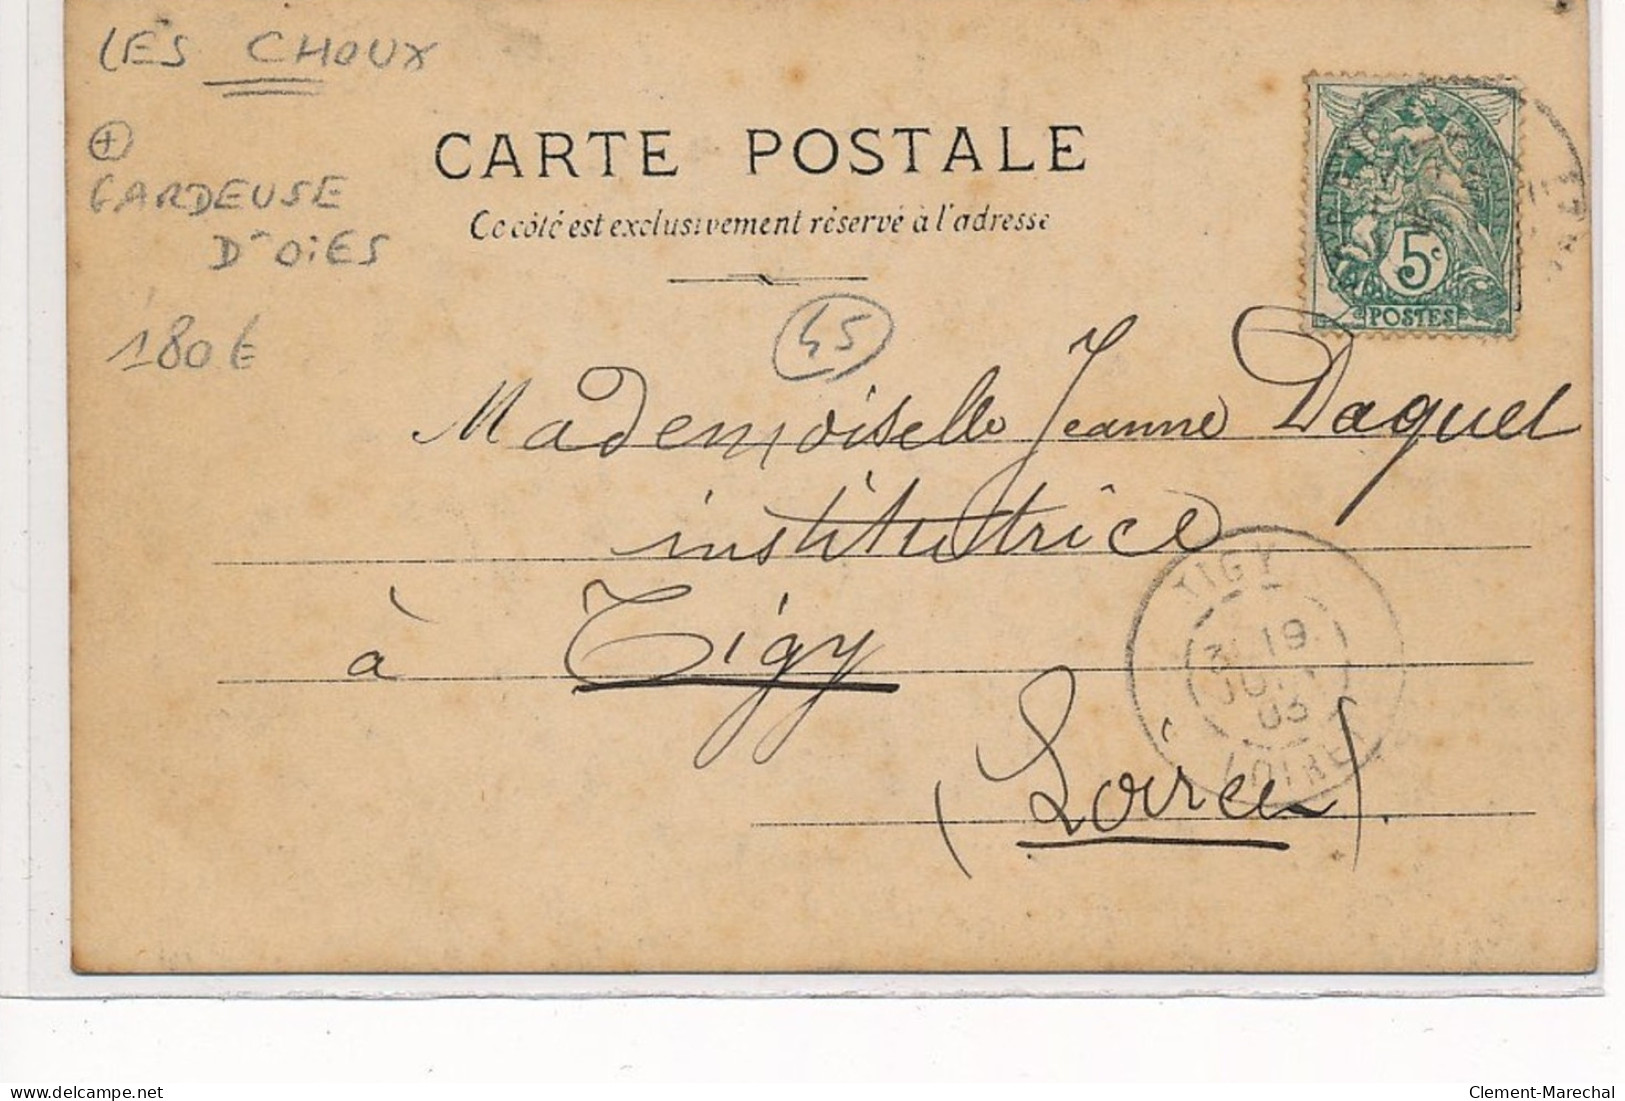 LES CHOUX
GARDEUSE
D'OIES
180€
CARTE POSTALE
Ce côté est exclusivement réservé à l'adresse
45
5c
POSTES
Mademoiselle Jeanne Daquet
institutrice
à Tigy
(Loiret).
TIGY
19
03
LOIRET
delcampe.net
Clement-Marechal